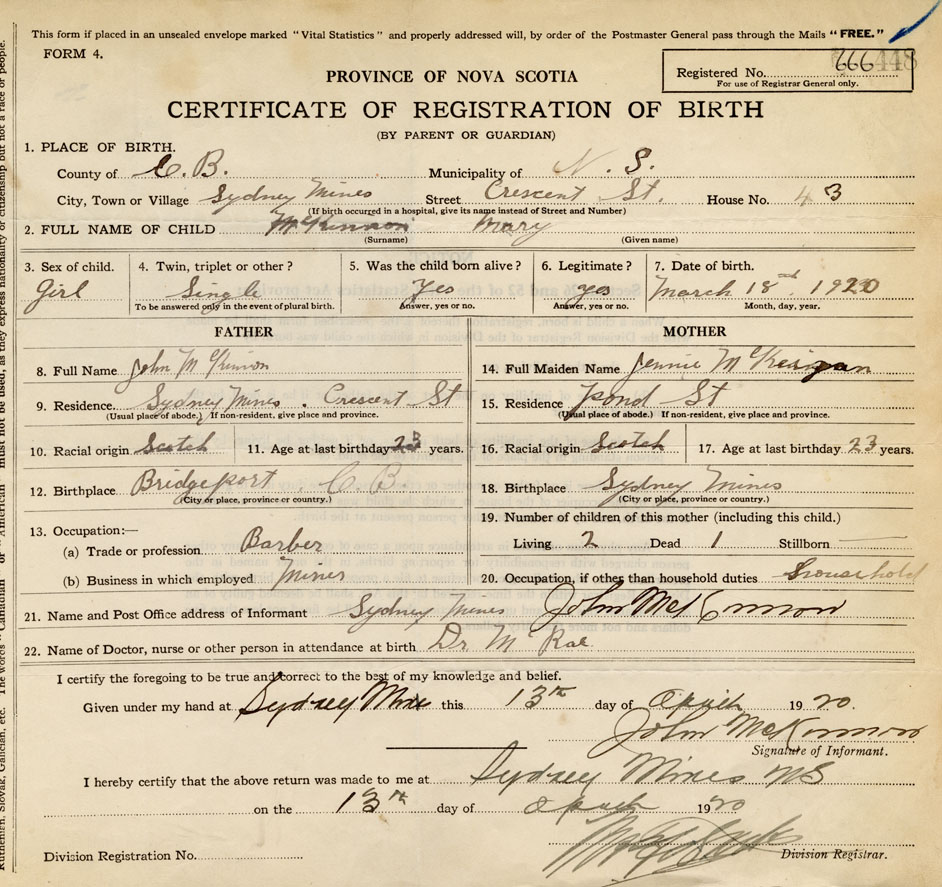 This form if placed in an unsealed envelope marked "Vital Statistics" and properly addressed will, by order of the Postmaster General pass through the Mails "FREE."
FORM 4.
Registered No. 666448
For use of Registrar General only.
PROVINCE OF NOVA SCOTIA
CERTIFICATE OF REGISTRATION OF BIRTH
(BY PARENT OR GUARDIAN)
1. PLACE OF BIRTH.
County of C. B. Municipality of N. S.
City, Town or Village Sydney Mines Street Crescent St. House No. 43
(If birth occurred in a hospital, give its name instead of Street and Number)
2. FULL NAME OF CHILD McKinnon Mary
(Surname) (Given name)
3. Sex of child. 4. Twin, triplet or other? 5. Was the child born alive? 6. Legitimate? 7. Date of birth.
Girl Single Yes yes March 18 1920
To be answered only in the event of plural birth. Answer, yes or no. Answer, yes or no. Month, day, year.
FATHER MOTHER
8. Full Name John McKinnon 14. Full Maiden Name Jennie McKeigan
9. Residence Sydney Mines. Crescent St 15. Residence Pond St
(Usual place of abode.) If non-resident, give place and province. (Usual place of abode.) If non-resident, give place and province.
10. Racial origin Scotch 11. Age at last birthday 23 years. 16. Racial origin Scotch 17. Age at last birthday 23 years.
12. Birthplace Bridgeport, C. B. 18. Birthplace Sydney Mines
(City or place, province or country.) (City or place, province or country.)
13. Occupation:— 19. Number of children of this mother (including this child.)
(a) Trade or profession Barber Living 2 Dead 1 Stillborn
(b) Business in which employed Mines 20. Occupation, if other than household duties Household
21. Name and Post Office address of Informant Sydney Mines John McKinnon
22. Name of Doctor, nurse or other person in attendance at birth Dr. McRae
I certify the foregoing to be true and correct to the best of my knowledge and belief.
Given under my hand at Sydney Mines this 13th day of April 1920.
John McKinnon
Signature of Informant.
I hereby certify that the above return was made to me at Sydney Mines NS
on the 13th day of April 1920
Division Registration No. Division Registrar.
Ruthenian, Slovak, Galician, etc. The words "Canadian" or "American" must not be used, as they express nationality or citizenship but not a race or people.